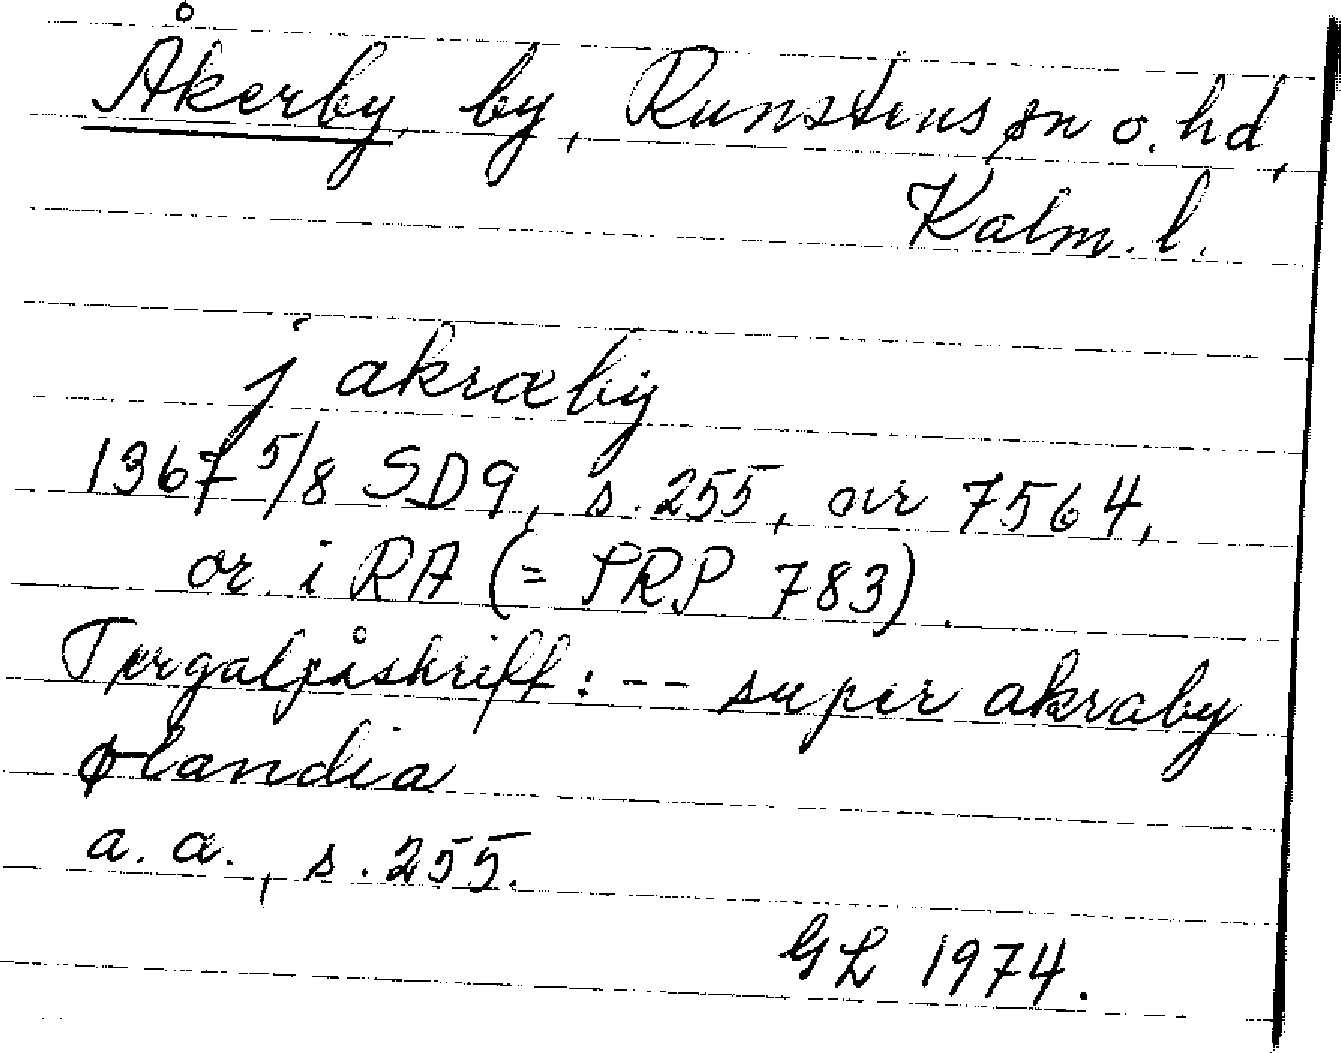 Åkerby by, Runstens sn o. hd,
Kalm. l.
j akræbẏ
1367 5/8 SD9, s. 255, nr 7564,
or. i RA (= PRP 783).
Tergalpåskrift: -- super akraby
ølandia
a. a., s. 255.
GL 1974.